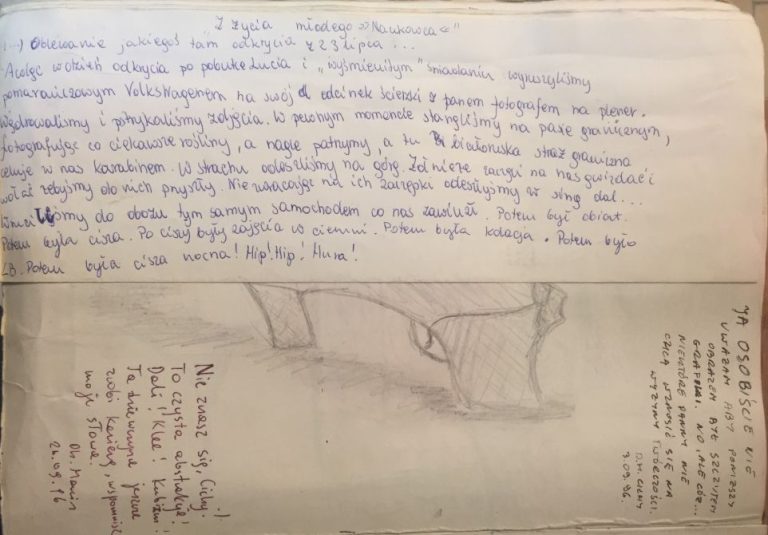 Z życia młodego »Naukowca«"
(...) Oblewanie jakiegoś tam odkrycia z 23 lipca...
A więc w dzień odkrycia po pobudce Łucia i „wyśmienitym" śniadaniu wyruszyliśmy
pomarańczowym VolksWagenem na swój odcinek ścieżki z panem fotografem na plener.
Wędrowaliśmy i pstrykaliśmy zdjęcia. W pewnym momencie stanęliśmy na pasie granicznym,
fotografując co ciekawsze rośliny, a nagle patrzymy, a tu białoruska straż graniczna
celuje w nas karabinem. W strachu odeszliśmy na górę. Żołnierze zaczęli na nas gwizdać i
wołać żebyśmy do nich przyszły. Nie zwracając na ich zaczepki odeszłyśmy w siną dal...
Wróciłyśmy do obozu tym samym samochodem co nas zawiózł. Potem był obiad.
Potem była cisza. Po ciszy były zajęcia w ciemni. Potem była kolacja. Potem było
ŁB. Potem była cisza nocna! Hip! Hip! Hura!
JA OSOBIŚCIE NIE
UWAŻAM ABY POWYŻSZY
OBRAZEK BYŁ SZCZYTEM
GRAFIKI. NO, ALE CÓŻ...
NIEKTÓRE PANNY NIE
CHCĄ WZNOSIĆ SIĘ NA
WYŻYNY TWÓRCZOŚCI.
D.H. CICHY
3.09.96.
Nie znasz się, Cichy! :)
To czysta abstrakcja!
Dali! Klee! Kubizm!
Ta dziewczyna jeszcze
zrobi karierę, wspomnisz
moje słowa.
Dh. Marcin
26.09.96